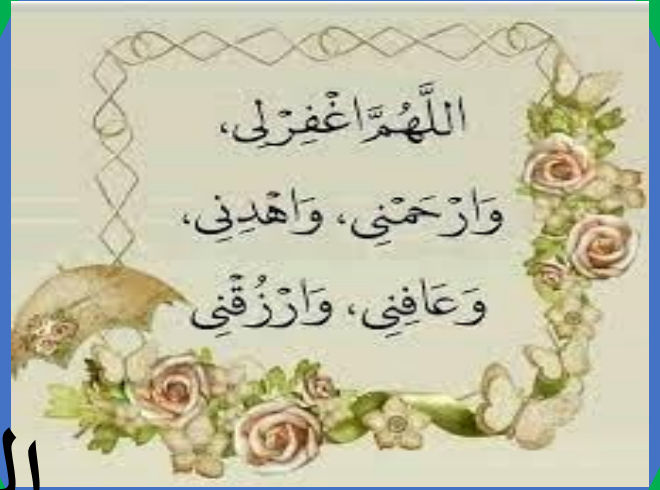 اللَّهُمَّ اغْفِرْ لِي،
وَارْحَمْنِي، وَاهْدِنِي،
وَعَافِنِي، وَارْزُقْنِي
ال